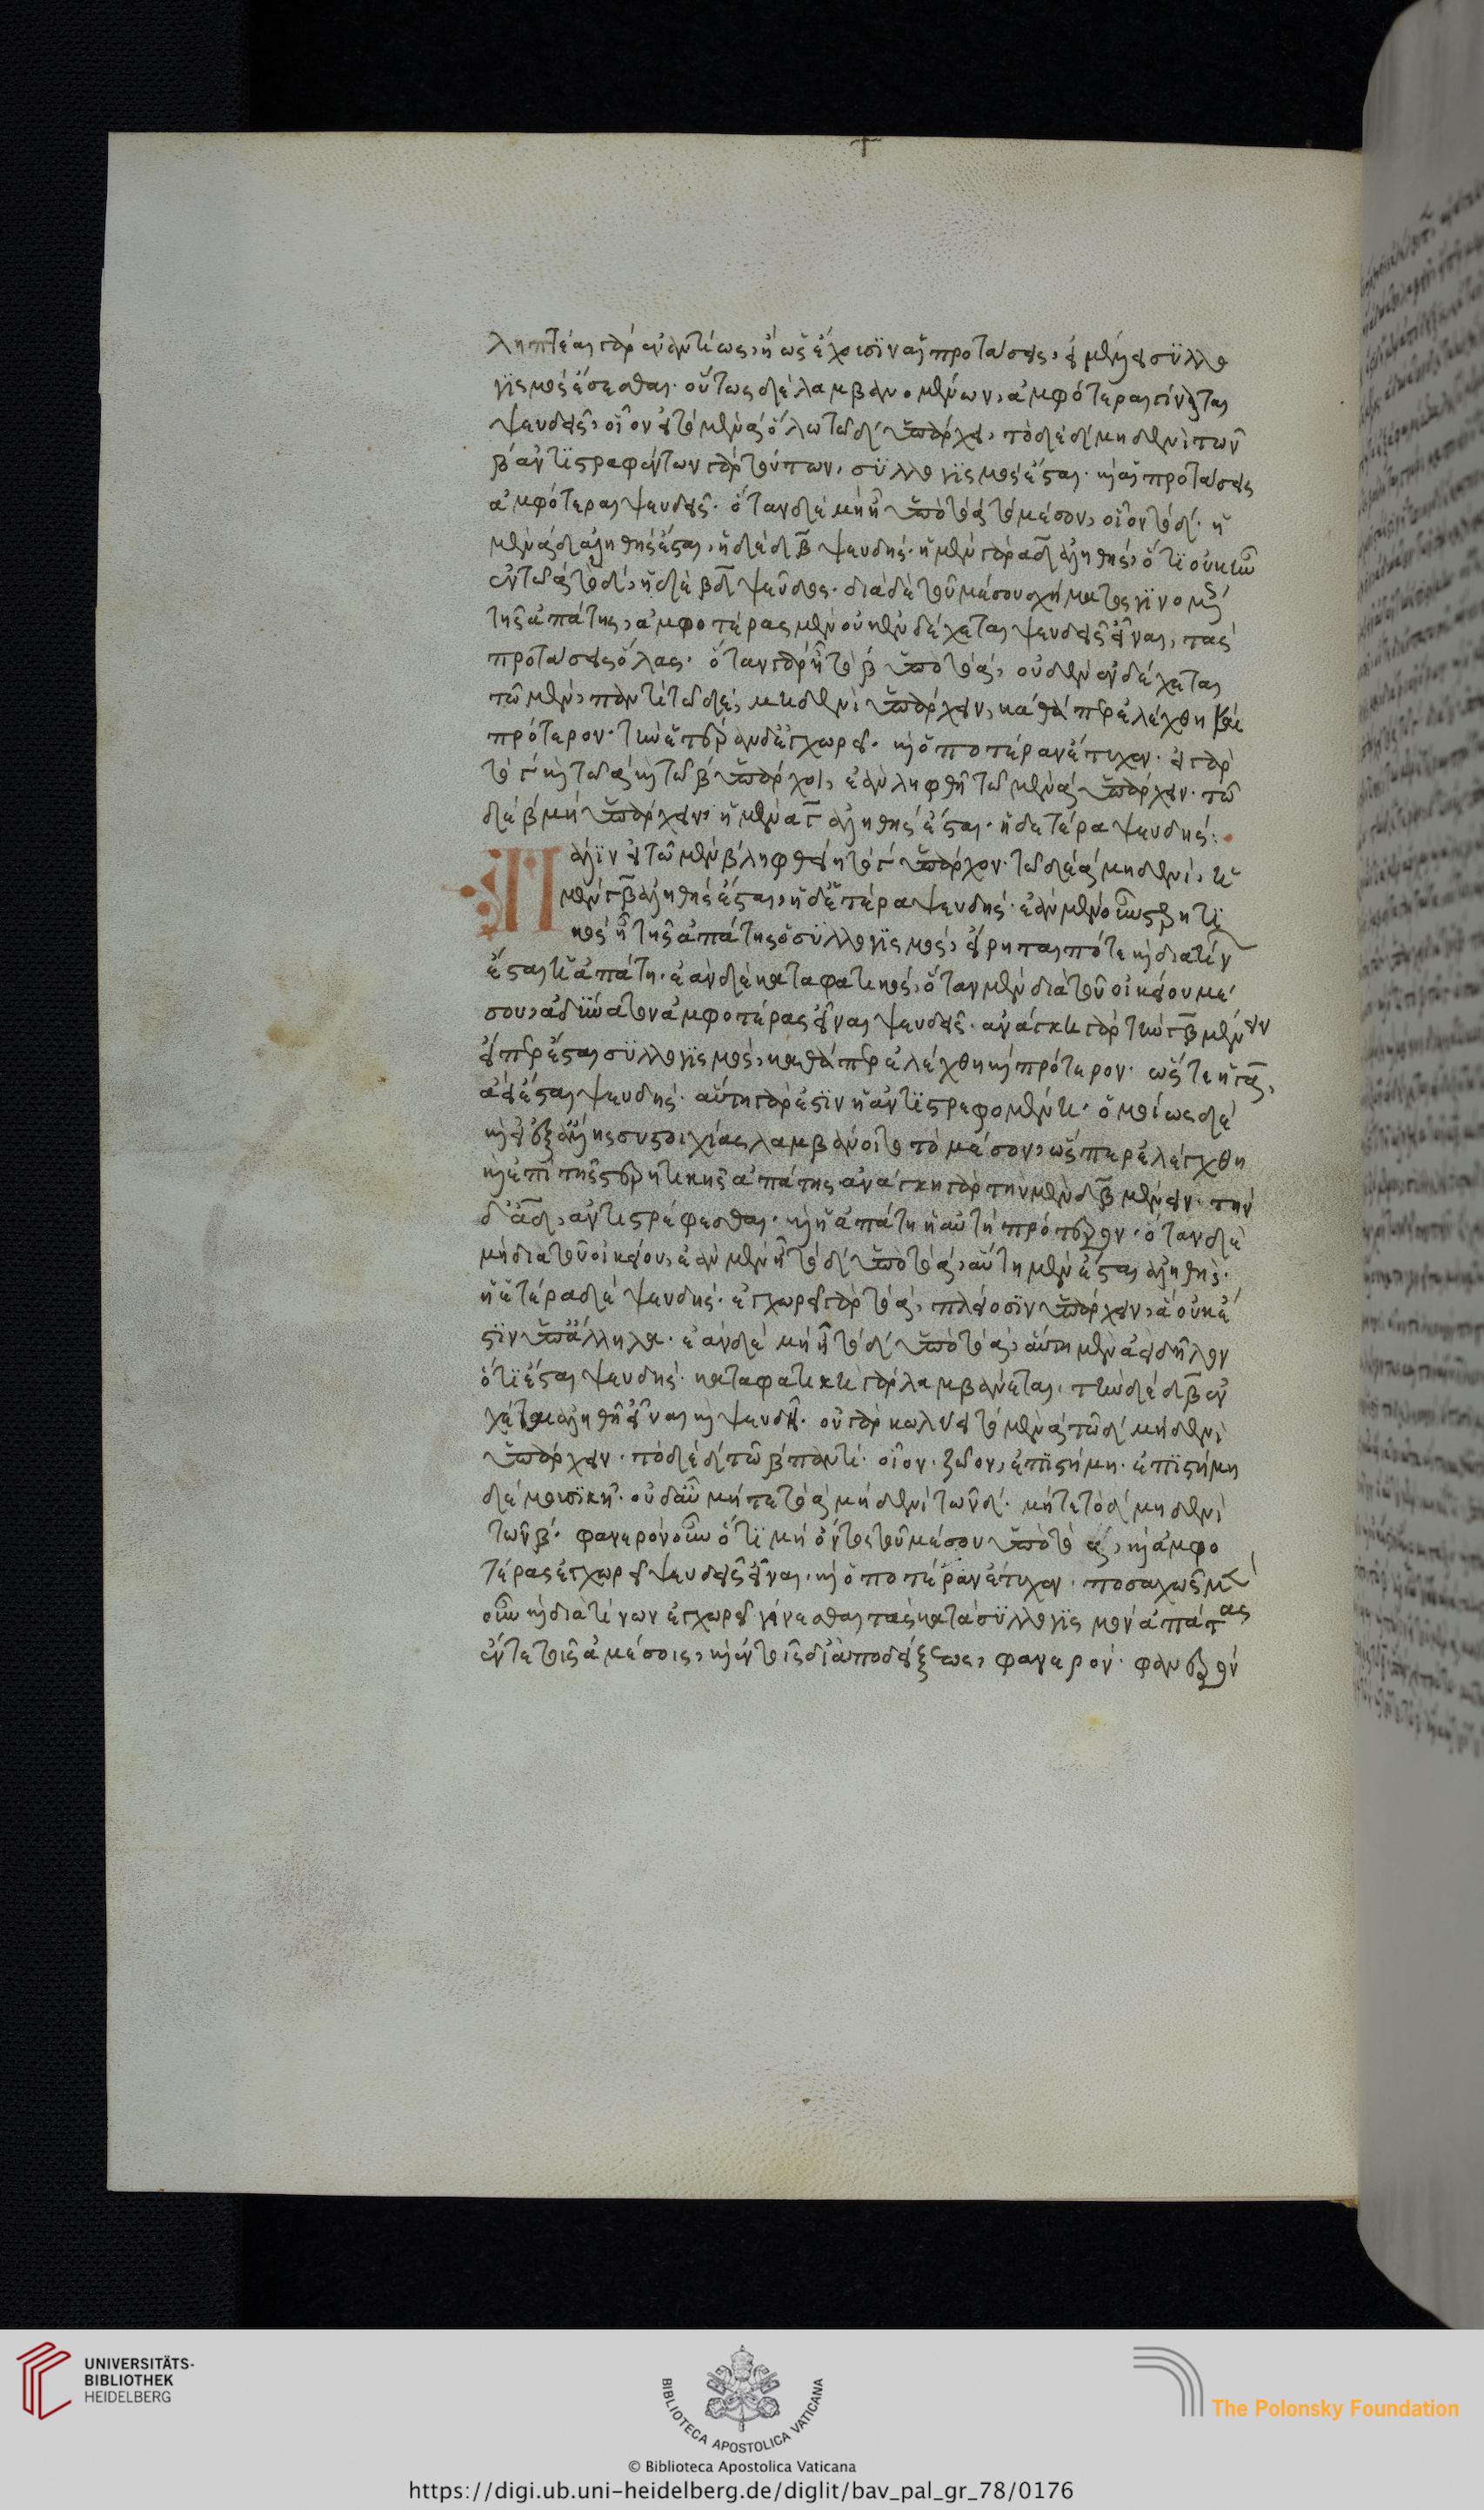 ληπτέαι γὰρ ἐναντίως, ἢ ὡς ἔχουσιν αἱ προτάσεις, εἰ μέλλει συλλο
γισμὸς ἔσεσθαι. οὕτως δὲ λαμβανομένων, ἀμφότεραι γίνονται
ψευδεῖς, οἷον εἰ τὸ μὲν α ὅλω τῶ δ ὑπάρχει, τὸ δὲ δ μηδενὶ τῶν
β ἀντιστραφέντων γὰρ τούτων, συλλογισμὸς ἔσται. καὶ αἱ προτάσεις
ἀμφότεραι ψευδεῖς. ὅταν δὲ μὴ ἦ ὑπὸ τὸ α τὸ μέσον, οἷον τὸ δ. ἡ
μὲν α δ ἀληθὴς ἔσται, ἡ δὲ δ β ψευδής. ἡ μὲν γὰρ α δ ἀληθής, ὅτι οὐκ ἦν
ἐν τῶ α τὸ δ, ἡ δὲ β δ ψεῦδος.
διὰ δὲ τοῦ μέσου σχήματος γινομένης
τῆς ἀπάτης, ἀμφοτέρας μὲν οὐκ ἐνδέχεται ψευδεῖς εἶναι, τὰς
προτάσεις ὅλας. ὅταν γὰρ ἦ τὸ β ὑπὸ τὸ α, οὐδὲν ἐνδέχεται
τῶ μὲν, παντὶ τῶ δὲ, μηδενὶ ὑπάρχειν, καθάπερ ἐλέχθη καὶ
πρότερον. τὴν ἑτέραν δὲ ἐγχωρεῖ. καὶ ὁποτέραν ἔτυχεν. εἰ γὰρ
τὸ γ καὶ τῶ α καὶ τῶ β ὑπάρχοι, ἐὰν ληφθῆ τῶ μὲν α ὑπάρχειν. τῶ
δὲ β μὴ ὑπάρχειν, ἡ μὲν α γ ἀληθὴς ἔσται. ἡ δ ἑτέρα ψευδής:
Πάλιν εἰ τῶ μὲν β ληφθείη τὸ γ ὑπάρχον. τῶ δὲ α μηδενί, ἡ
μὲν γ β ἀληθὴς ἔσται, ἡ δ ἑτέρα ψευδής. ἐὰν μὲν οὖν στερητι
κὸς ἦ τῆς ἀπάτης ὁ συλλογισμός, εἴρηται πότε καὶ διὰ τίν
ἔσται ἡ ἀπάτη. ἐὰν δὲ καταφατικός, ὅταν μὲν διὰ τοῦ οἰκείου μέ
σου, ἀδύνατον ἀμφοτέρας εἶναι ψευδεῖς. ἀνάγκη γὰρ τὴν γ β μένειν
εἴπερ ἔσται συλλογισμός, καθάπερ ἐλέχθη καὶ πρότερον. ὥστε ἡ γ α,
ἀεὶ ἔσται ψευδής. αὕτη γάρ ἐστιν ἡ ἀντιστρεφομένη. ὁμοίως δὲ
καὶ εἰ ἐξ ἄλλης συστοιχίας λαμβάνοιτο τὸ μέσον, ὥσπερ ἐλέγχθη
καὶ ἐπὶ τῆς στερητικῆς ἀπάτης. ἀνάγκη γὰρ τὴν μὲν δ β μένειν. τὴν
δ α δ, ἀντιστρέφεσθαι. καὶ ἡ ἀπάτη ἡ αὐτὴ πρότερον. ὅταν δὲ
μὴ διὰ τοῦ οἰκείου, ἐὰν μὲν ἦ τὸ δ ὑπὸ τὸ α, αὕτη μὲν ἔσται ἀληθής.
ἡ ἑτέρα δὲ ψευδής. ἐγχωρεῖ γὰρ τὸ α, πλείοσιν ὑπάρχειν, ἃ οὐκ ἔ
στιν ὑπ ἄλληλα. ἐὰν δὲ μὴ ἦ τὸ δ ὑπὸ τὸ α, αὕτη μὲν ἀεὶ δῆλον
ὅτι ἔσται ψευδής. καταφατικὴ γὰρ λαμβάνεται, τὴν δὲ δ β ἐν
χέται ἀληθῆ εἶναι καὶ ψευδῆ. οὐ γὰρ κωλύει τὸ μὲν α τῶ δ μηδενὶ
ὑπάρχειν. τὸ δὲ δ τῶ β παντί. οἷον. ζῶον, ἐπιστήμη. ἐπιστήμη
δὲ μουσικῆ. οὐδ αὖ μήτε τὸ α μηδενὶ τῶν δ. μήτε τὸ δ μηδενὶ
τῶν β. φανερὸν οὖν ὅτι μὴ ὄντος τοῦ μέσου ὑπὸ τὸ α, καὶ ἀμφο
τέρας ἐγχωρεῖ ψευδεῖς εἶναι. καὶ ὁποτέραν ἔτυχεν. ποσαχῶς μὲν
οὖν καὶ διὰ τίνων ἐγχωρεῖ γίνεσθαι τὰς κατὰ συλλογισμὸν ἀπάτας
ἔν τε τοῖς ἀμέσοις, καὶ ἐν τοῖς δι ἀποδείξεως, φανερόν. φανερὸν
UNIVERSITÄTS-
BIBLIOTHEK
HEIDELBERG
BIBLIOTECA APOSTOLICA VATICANA
The Polonsky Foundation
© Biblioteca Apostolica Vaticana
https://digi.ub.uni-heidelberg.de/diglit/bav_pal_gr_78/0176